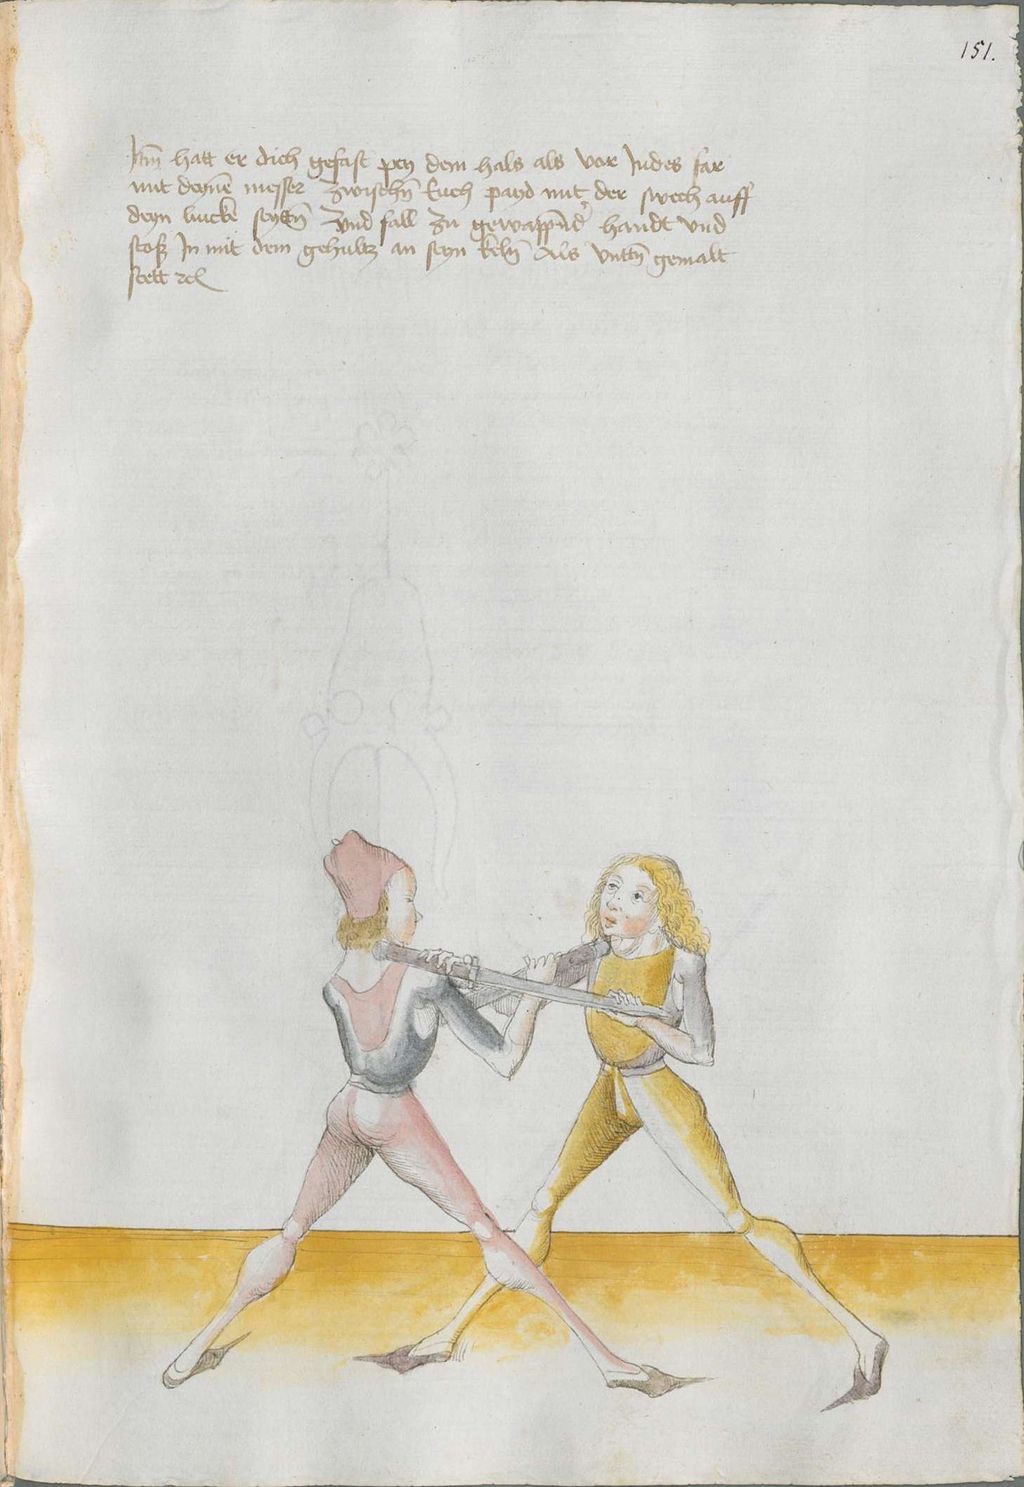 151.
Itm̄ hatt er dich gefast pey dem hals als vor Indes far
mit deynē messer zwischn̄ Euch payd mit der swech auff
deyn lincke seyttn̄ vnd fall zu gewappēd̾ handt vnd
stosz In mit dem gehultz an seyn keln̄ Als vnttn̄ gemalt
stett ꝛcꝭ